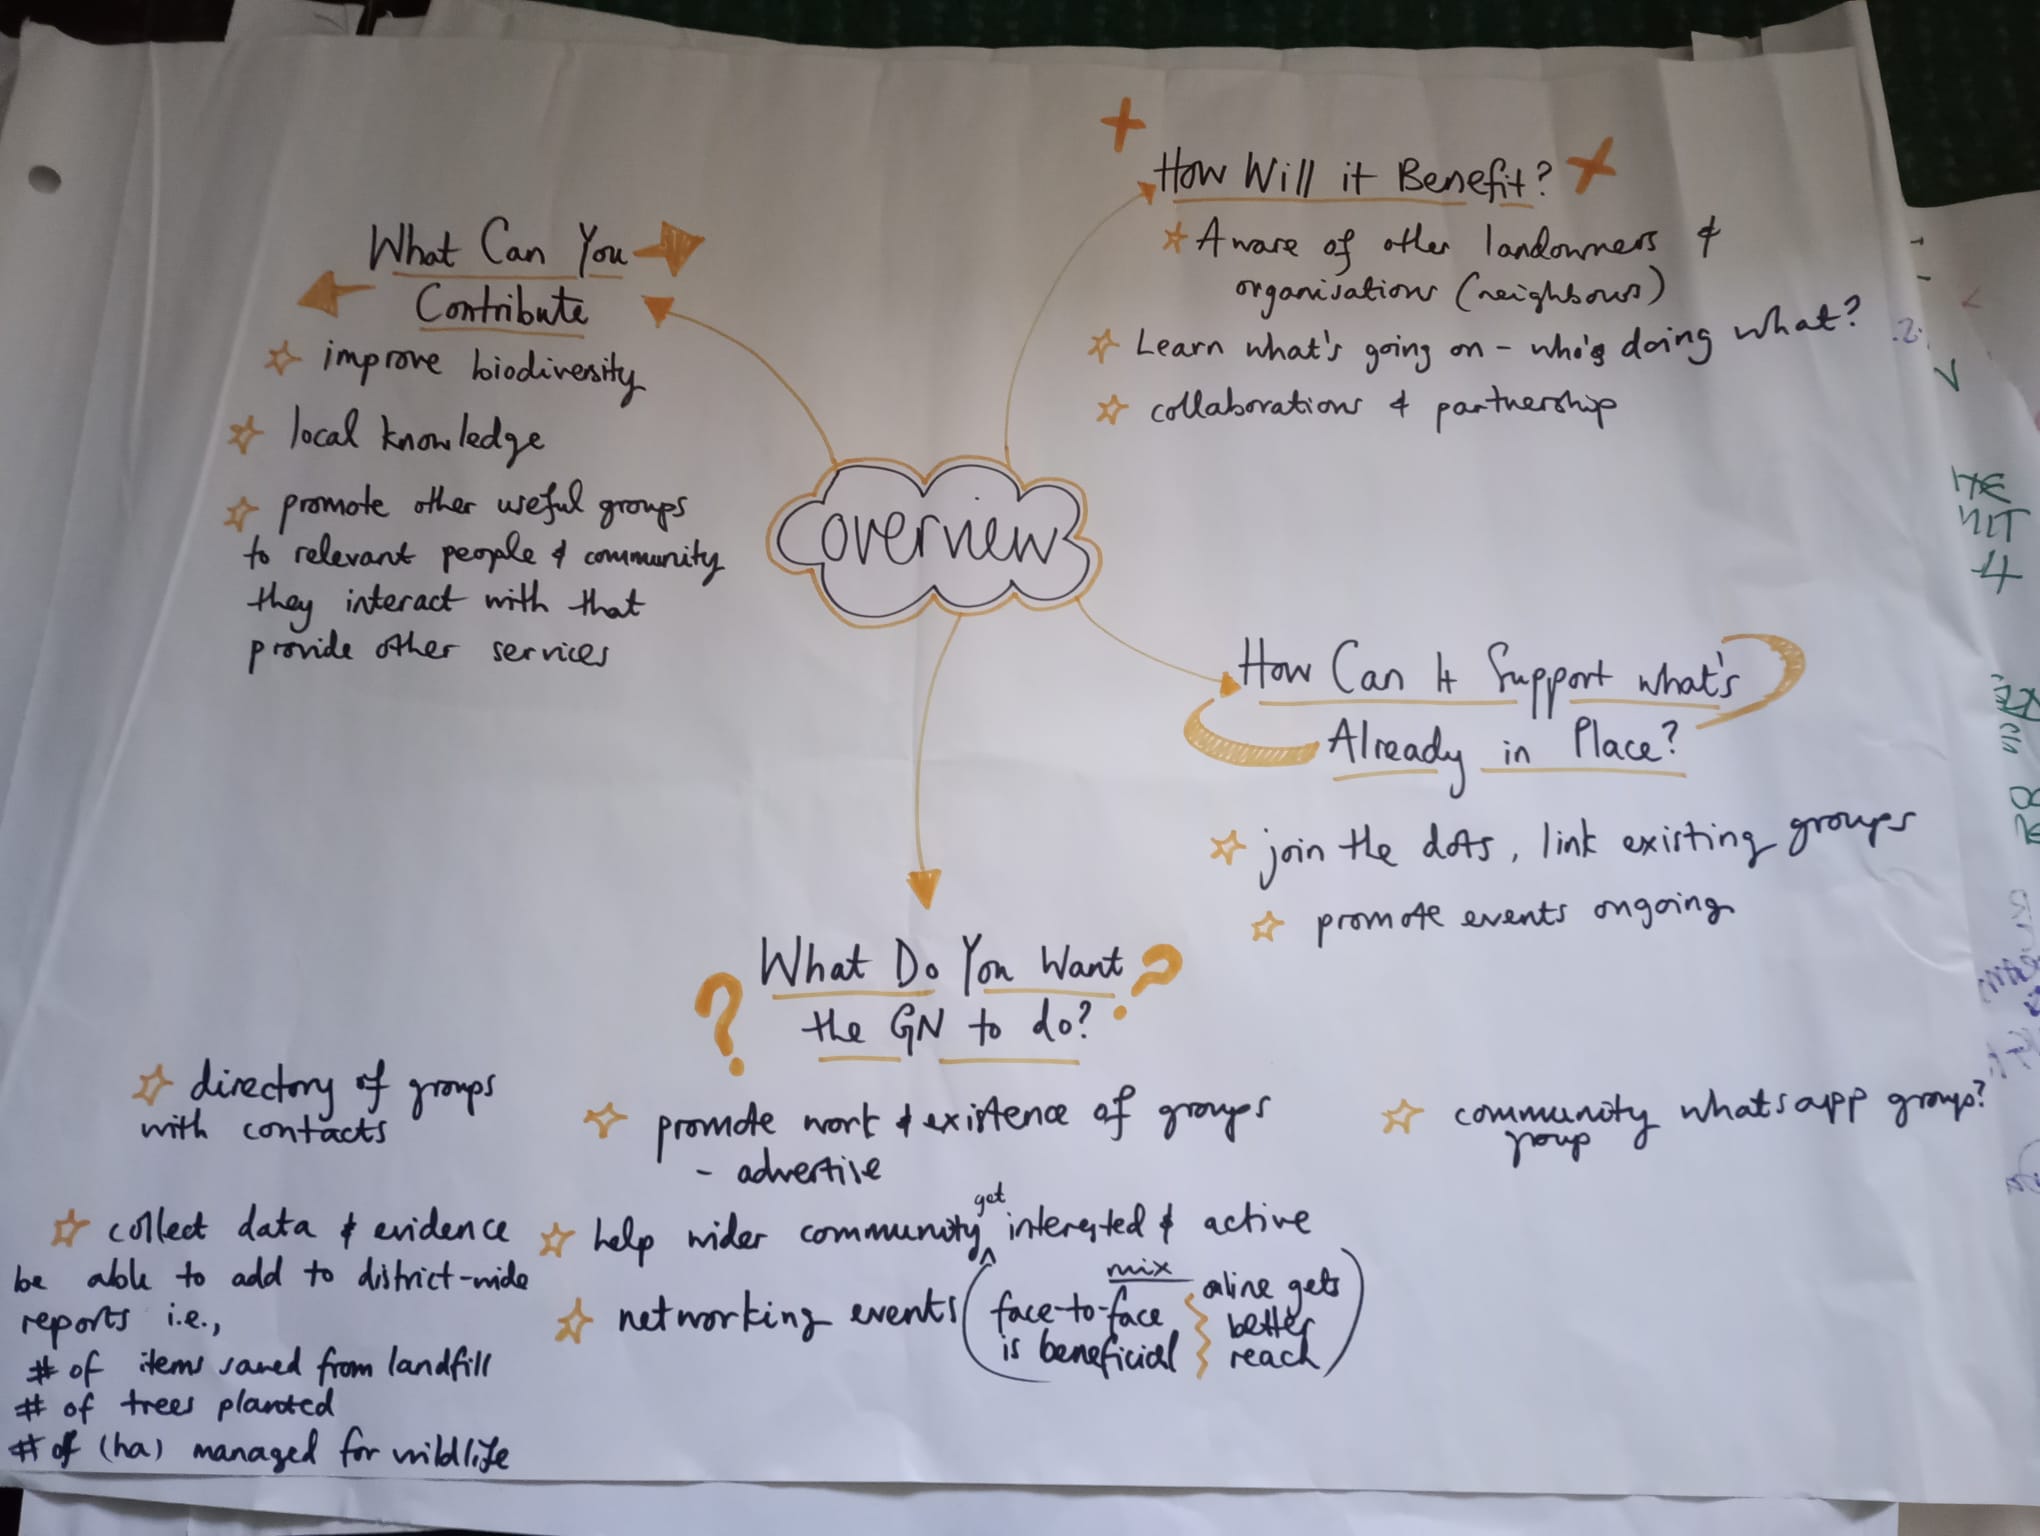 What Can You
Contribute
improve biodiversity
local knowledge
promote other useful groups
to relevant people & community
they interact with that
provide other services
How Will it Benefit?
Aware of other landowners &
organisations (neighbours)
Learn what's going on - who's doing what?
collaborations & partnership
overview
How Can It Support what's
Already in Place?
join the dots, link existing groups
promote events ongoing
What Do You Want
the GN to do?
directory of groups
with contacts
collect data & evidence
be able to add to district-wide
reports i.e.,
# of items saved from landfill
# of trees planted
# of (ha) managed for wildlife
promote work & existence of groups
- advertise
help wider community get interested & active
networking events (face-to-face
is beneficial
mix
online gets
better
reach)
community whatsapp groups?
group